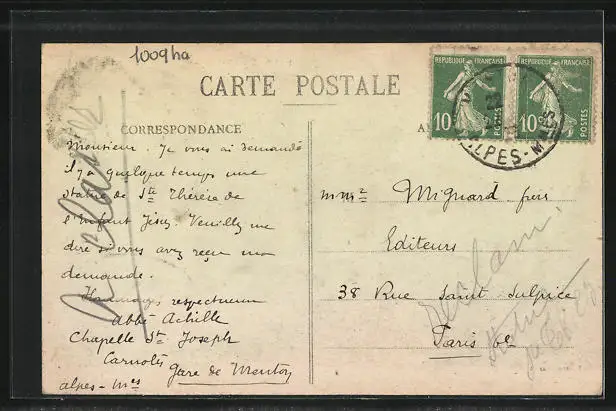 1009ha
CARTE POSTALE
REPUBLIQUE FRANÇAISE
10c
POSTES
REPUBLIQUE FRANÇAISE
10c
POSTES
ALPES-M
CORRESPONDANCE
Monsieur. Je vous ai demandé
il y a quelque temps une
statue de Ste Thérèse de
l'Enfant Jésus. Veuillez me
dire si vous avez reçu ma
demande.
Hommages respectueux
Abbé Achille
Chapelle St Joseph
Carnolès Gare de Menton
alpes-mes
Mignard frères
Editeurs
38 Rue Saint Sulpice
Paris 6e